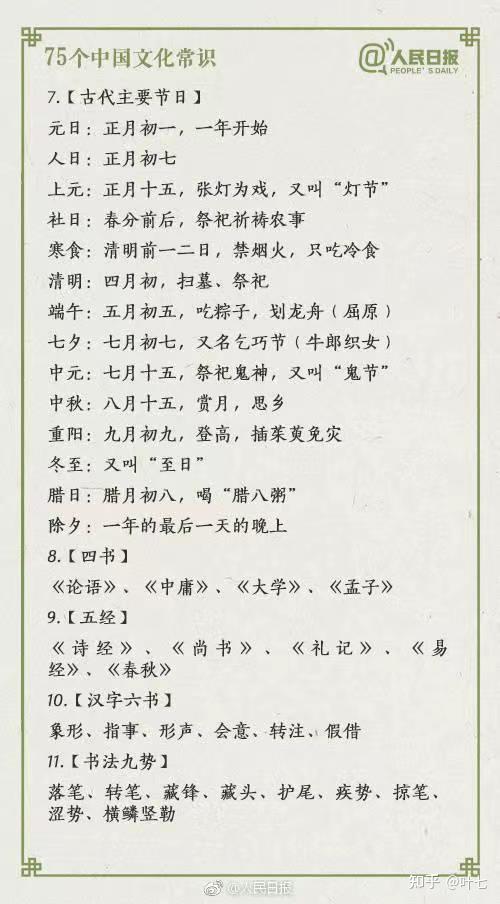 75个中国文化常识
@人民日报
PEOPLE'S DAILY
7.【古代主要节日】
元日：正月初一，一年开始
人日：正月初七
上元：正月十五，张灯为戏，又叫“灯节”
社日：春分前后，祭祀祈祷农事
寒食：清明前一二日，禁烟火，只吃冷食
清明：四月初，扫墓、祭祀
端午：五月初五，吃粽子，划龙舟（屈原）
七夕：七月初七，又名乞巧节（牛郎织女）
中元：七月十五，祭祀鬼神，又叫“鬼节”
中秋：八月十五，赏月，思乡
重阳：九月初九，登高，插茱萸免灾
冬至：又叫“至日”
腊日：腊月初八，喝“腊八粥”
除夕：一年的最后一天的晚上
8.【四书】
《论语》、《中庸》、《大学》、《孟子》
9.【五经】
《诗经》、《尚书》、《礼记》、《易
经》、《春秋》
10.【汉字六书】
象形、指事、形声、会意、转注、假借
11.【书法九势】
落笔、转笔、藏锋、藏头、护尾、疾势、掠笔、
涩势、横鳞竖勒
知乎 @叶七
@人民日报